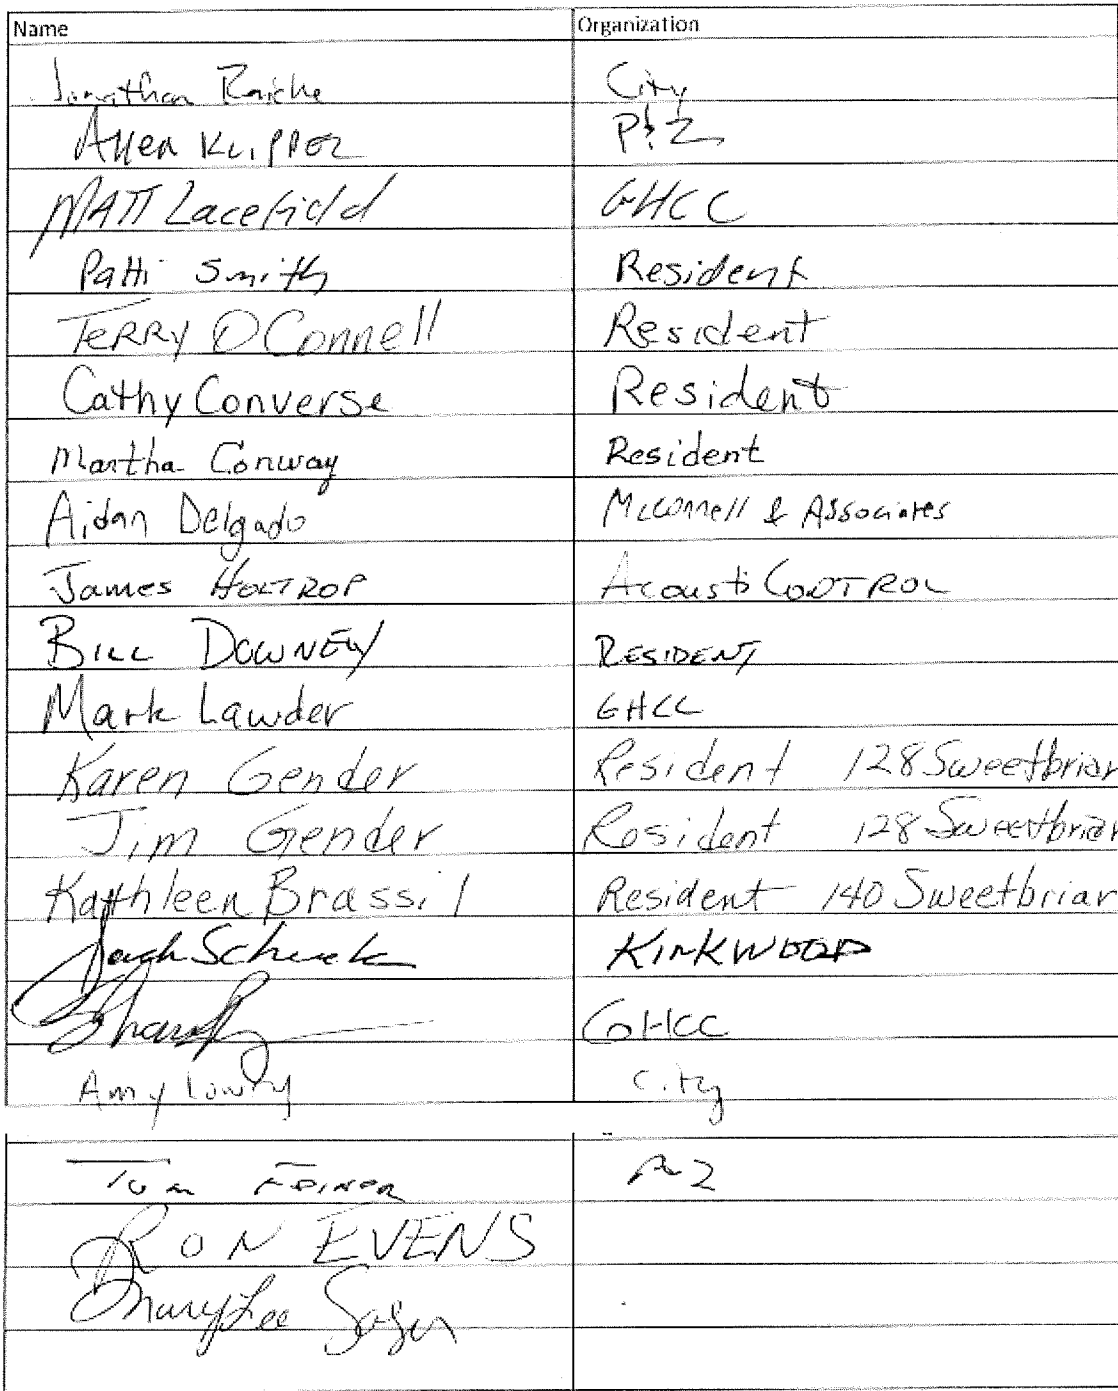 Name Organization
Jonathan Raiche City
Allen Klippel P&Z
MATT Lacefield GHCC
Patti Smith Resident
TERRY O'Connell Resident
Cathy Converse Resident
Martha Conway Resident
Aidan Delgado McConnell & Associates
James HOLTROP Acousti CONTROL
BILL DOWNEY RESIDENT
Mark Lawder GHCC
Karen Gender Resident 128 Sweetbriar
Jim Gender Resident 128 Sweetbriar
Kathleen Brassil Resident 140 Sweetbriar
KIRKWOOD
GHCC
Amy Lowry City
Tom FEINER PZ
RON EVENS
Mary Lee